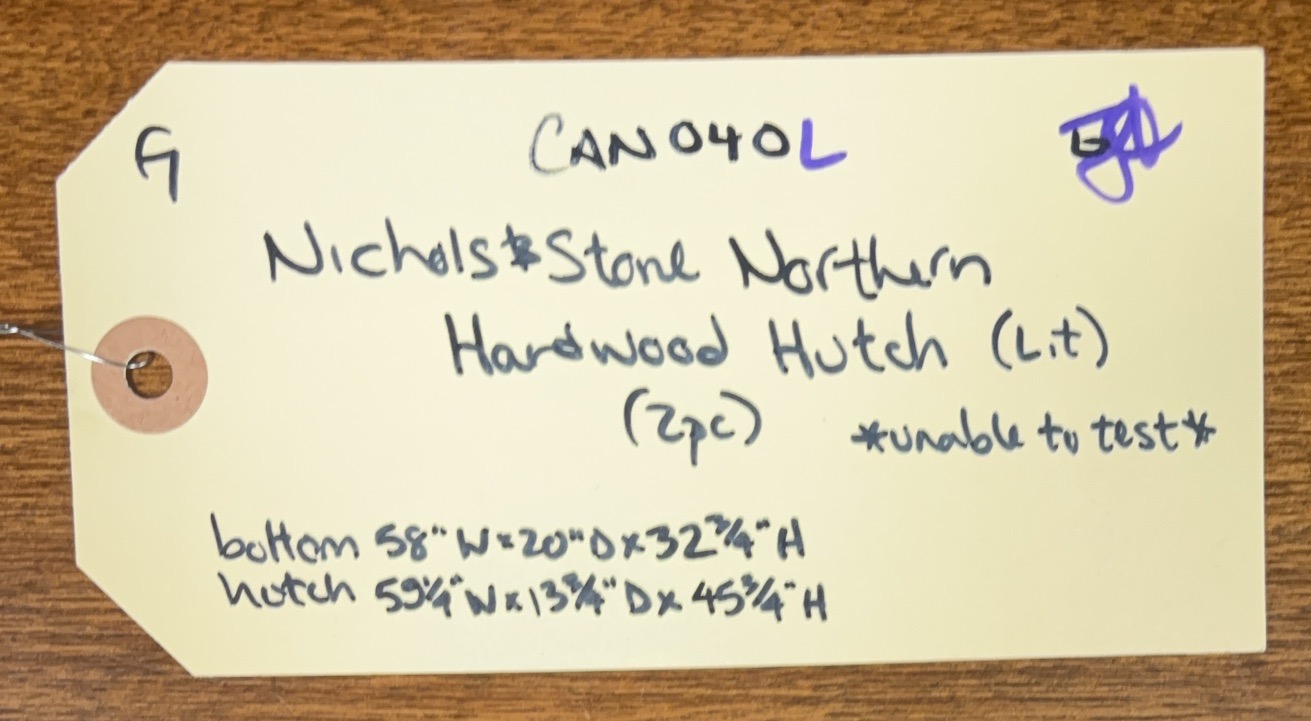 CAN040L
Nichols & Stone Northern
Hardwood Hutch (Lit)
(2pc) *unable to test*
bottom 58" W x 20" D x 32 3/4" H
hutch 59 1/4" W x 13 3/4" D x 45 3/4" H